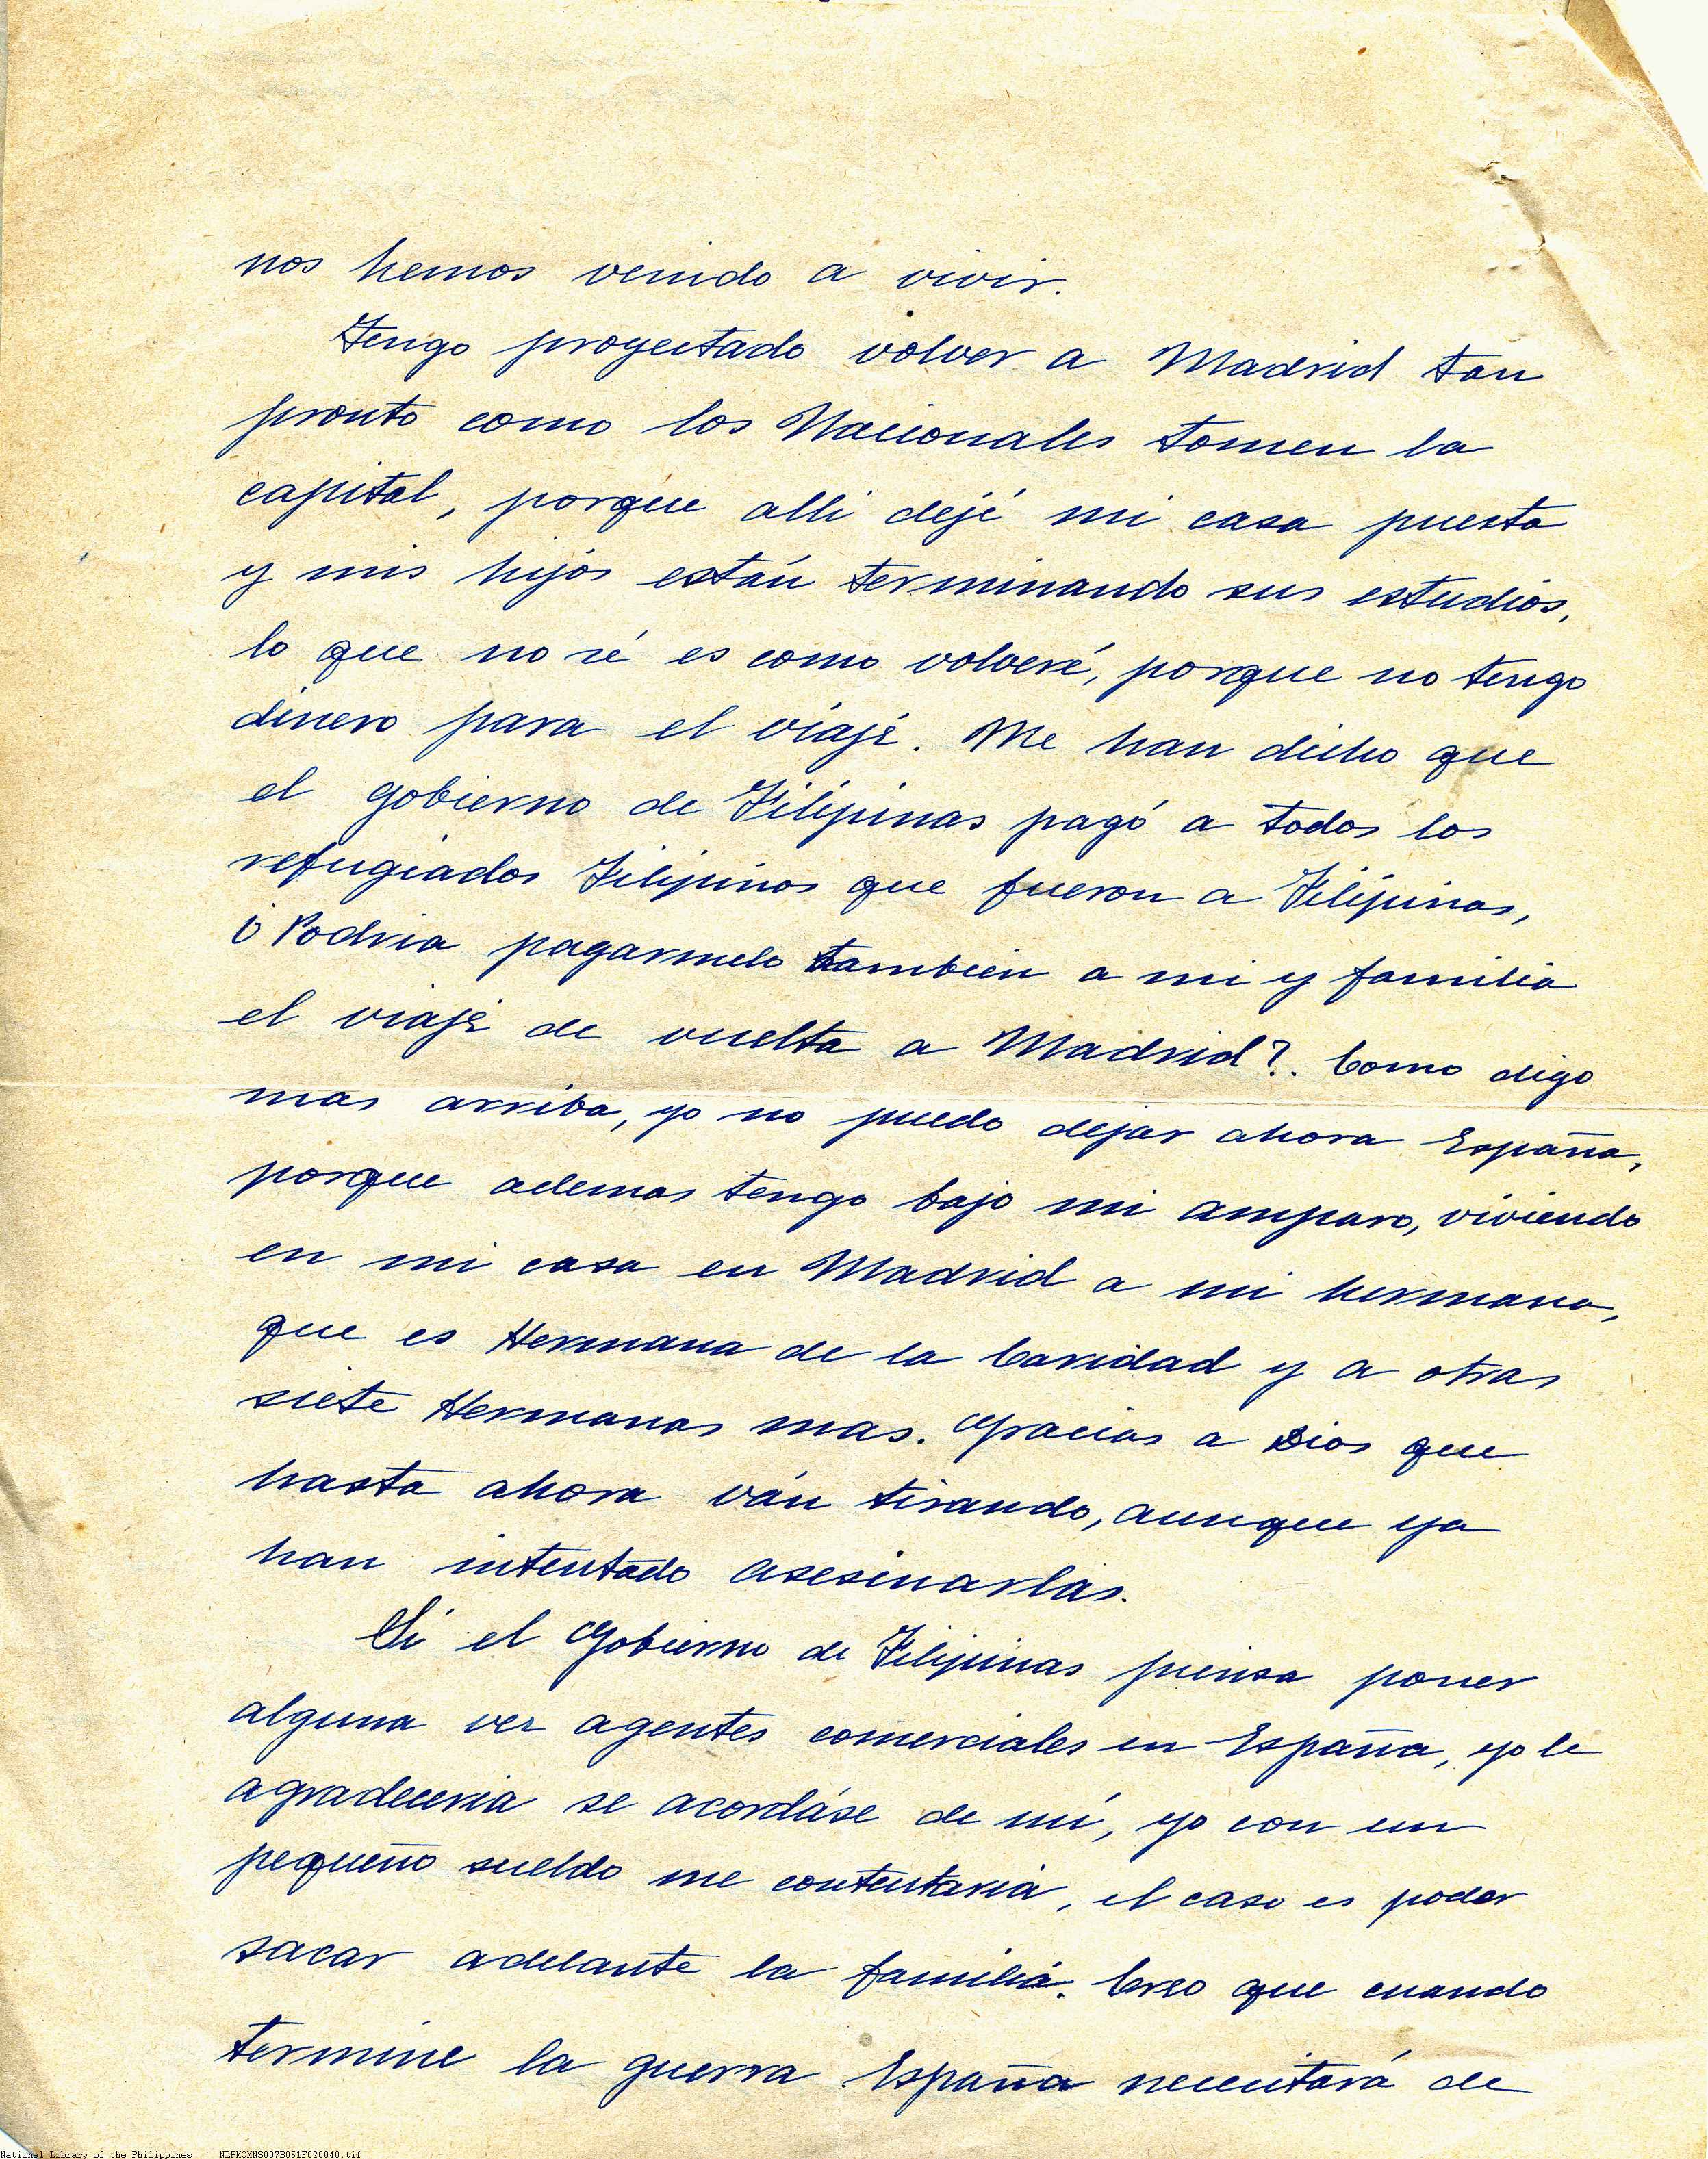 nos hemos venido a vivir.
Tengo proyectado volver a Madrid tan
pronto como los Nacionales tomen la
capital, porque alli dejé mi casa puesta
y mis hijos están terminando sus estudios,
lo que no sé es como volveré, porque no tengo
dinero para el viaje. Me han dicho que
el gobierno de Filipinas pagó a todos los
refugiados Filipinos que fueron a Filipinas,
¿Podria pagarmelo tambien a mi y familia
el viaje de vuelta a Madrid?. Como digo
mas arriba, yo no puedo dejar ahora España,
porque ademas tengo bajo mi amparo, viviendo
en mi casa en Madrid a mi hermana,
que es Hermana de la Caridad y a otras
siete Hermanas mas. Gracias a Dios que
hasta ahora ván tirando, aunque ya
han intentado asesinarlas.
Si el Gobierno de Filipinas piensa poner
alguna vez agentes comerciales en España, yo le
agradeceria se acordáse de mí, yo con un
pequeño sueldo me contentaria, el caso es poder
sacar adelante la familia. Creo que cuando
termine la guerra España necesitará de
National Library of the Philippines NLPMQMNS007B051F020040.tif